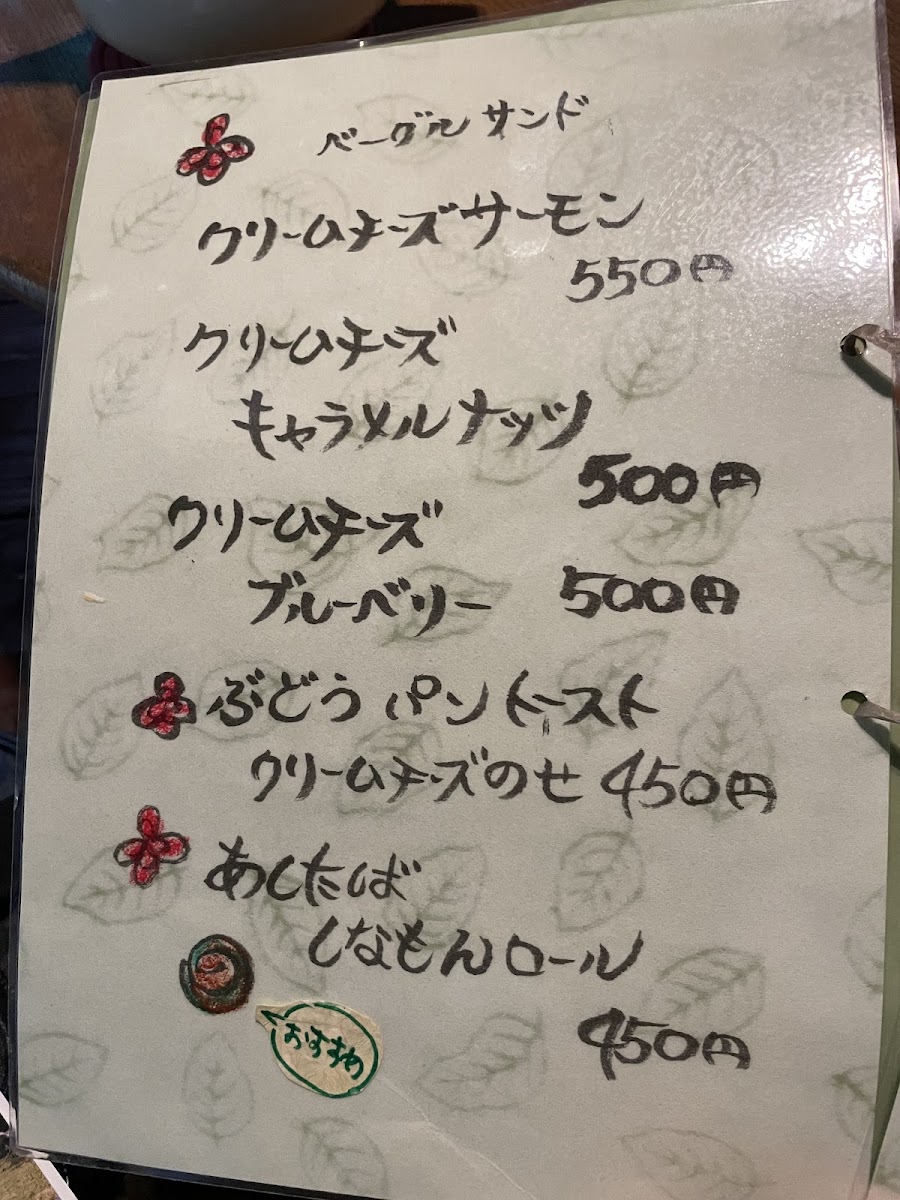 ベーグルサンド
クリームチーズサーモン
550円
クリームチーズ
キャラメルナッツ
500円
クリームチーズ
ブルーベリー 500円
ぶどうパントースト
クリームチーズのせ 450円
あしたば
しなもんロール
おすすめ
450円